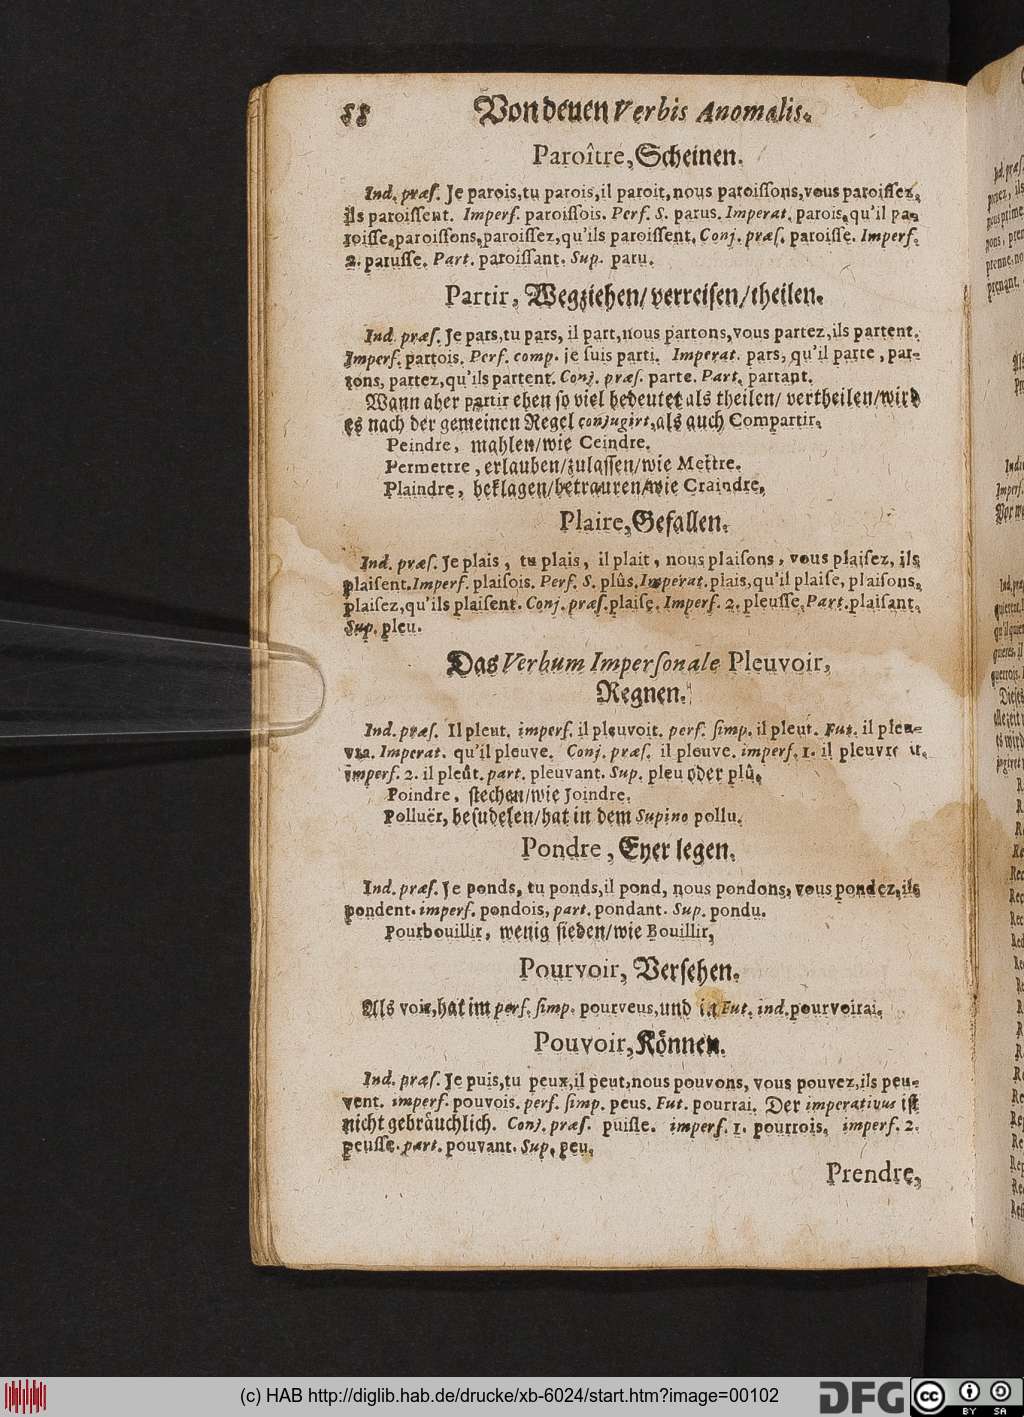 88 Von denen Verbis Anomalis.
Paroître, Scheinen.
Ind. præſ. Je parois, tu parois, il paroit, nous paroiſſons, vous paroiſſez,
ils paroiſſent. Imperf. paroiſſois. Perf. S. parus. Imperat. parois, qu'il pa-
roiſſe, paroiſſons, paroiſſez, qu'ils paroiſſent. Conj. præſ. paroiſſe. Imperf.
2. paruſſe. Part. paroiſſant. Sup. paru.
Partir, Wegziehen/ verreiſen/ theilen.
Ind. præſ. Je pars, tu pars, il part, nous partons, vous partez, ils partent.
Imperf. partois. Perf. comp. je ſuis parti. Imperat. pars, qu'il parte, par-
tons, partez, qu'ils partent. Conj. præſ. parte. Part. partant.
Wann aber partir eben ſo viel bedeutet als theilen/ vertheilen/ wird
es nach der gemeinen Regel conjugirt, als auch Compartir.
Peindre, mahlen/ wie Ceindre.
Permettre, erlauben/ zulaſſen/ wie Mettre.
Plaindre, beklagen/ betrauren/ wie Craindre.
Plaire, Gefallen.
Ind. præſ. Je plais, tu plais, il plait, nous plaiſons, vous plaiſez, ils
plaiſent. Imperf. plaiſois. Perf. S. plûs. Imperat. plais, qu'il plaiſe, plaiſons,
plaiſez, qu'ils plaiſent. Conj. præſ. plaiſe. Imperf. 2. pleuſſe. Part. plaiſant.
Sup. pleu.
Das Verbum Imperſonale Pleuvoir,
Regnen.
Ind. præſ. Il pleut. imperf. il pleuvoit. perf. ſimp. il pleut. Fut. il pleu-
vra. Imperat. qu'il pleuve. Conj. præſ. il pleuve. imperf. 1. il pleuvroit.
imperf. 2. il pleût. part. pleuvant. Sup. pleu oder plû.
Poindre, ſtechen/ wie Joindre.
Polluër, beſudelen/ hat in dem Supino pollu.
Pondre, Eyer legen.
Ind. præſ. Je ponds, tu ponds, il pond, nous pondons, vous pondez, ils
pondent. imperf. pondois, part. pondant. Sup. pondu.
Pourbouillir, wenig ſieden/ wie Bouillir,
Pourvoir, Verſehen.
Als voir, hat im perf. ſimp. pourveus, und in Fut. ind. pourvoirai.
Pouvoir, Können.
Ind. præſ. Je puis, tu peux, il peut, nous pouvons, vous pouvez, ils peu-
vent. imperf. pouvois. perf. ſimp. peus. Fut. pourrai. Der imperativus iſt
nicht gebräuchlich. Conj. præſ. puiſſe. imperf. 1. pourrois. imperf. 2.
peuſſe. part. pouvant. Sup. peu.
Prendre,
(c) HAB http://diglib.hab.de/drucke/xb-6024/start.htm?image=00102
DFG
CC BY SA